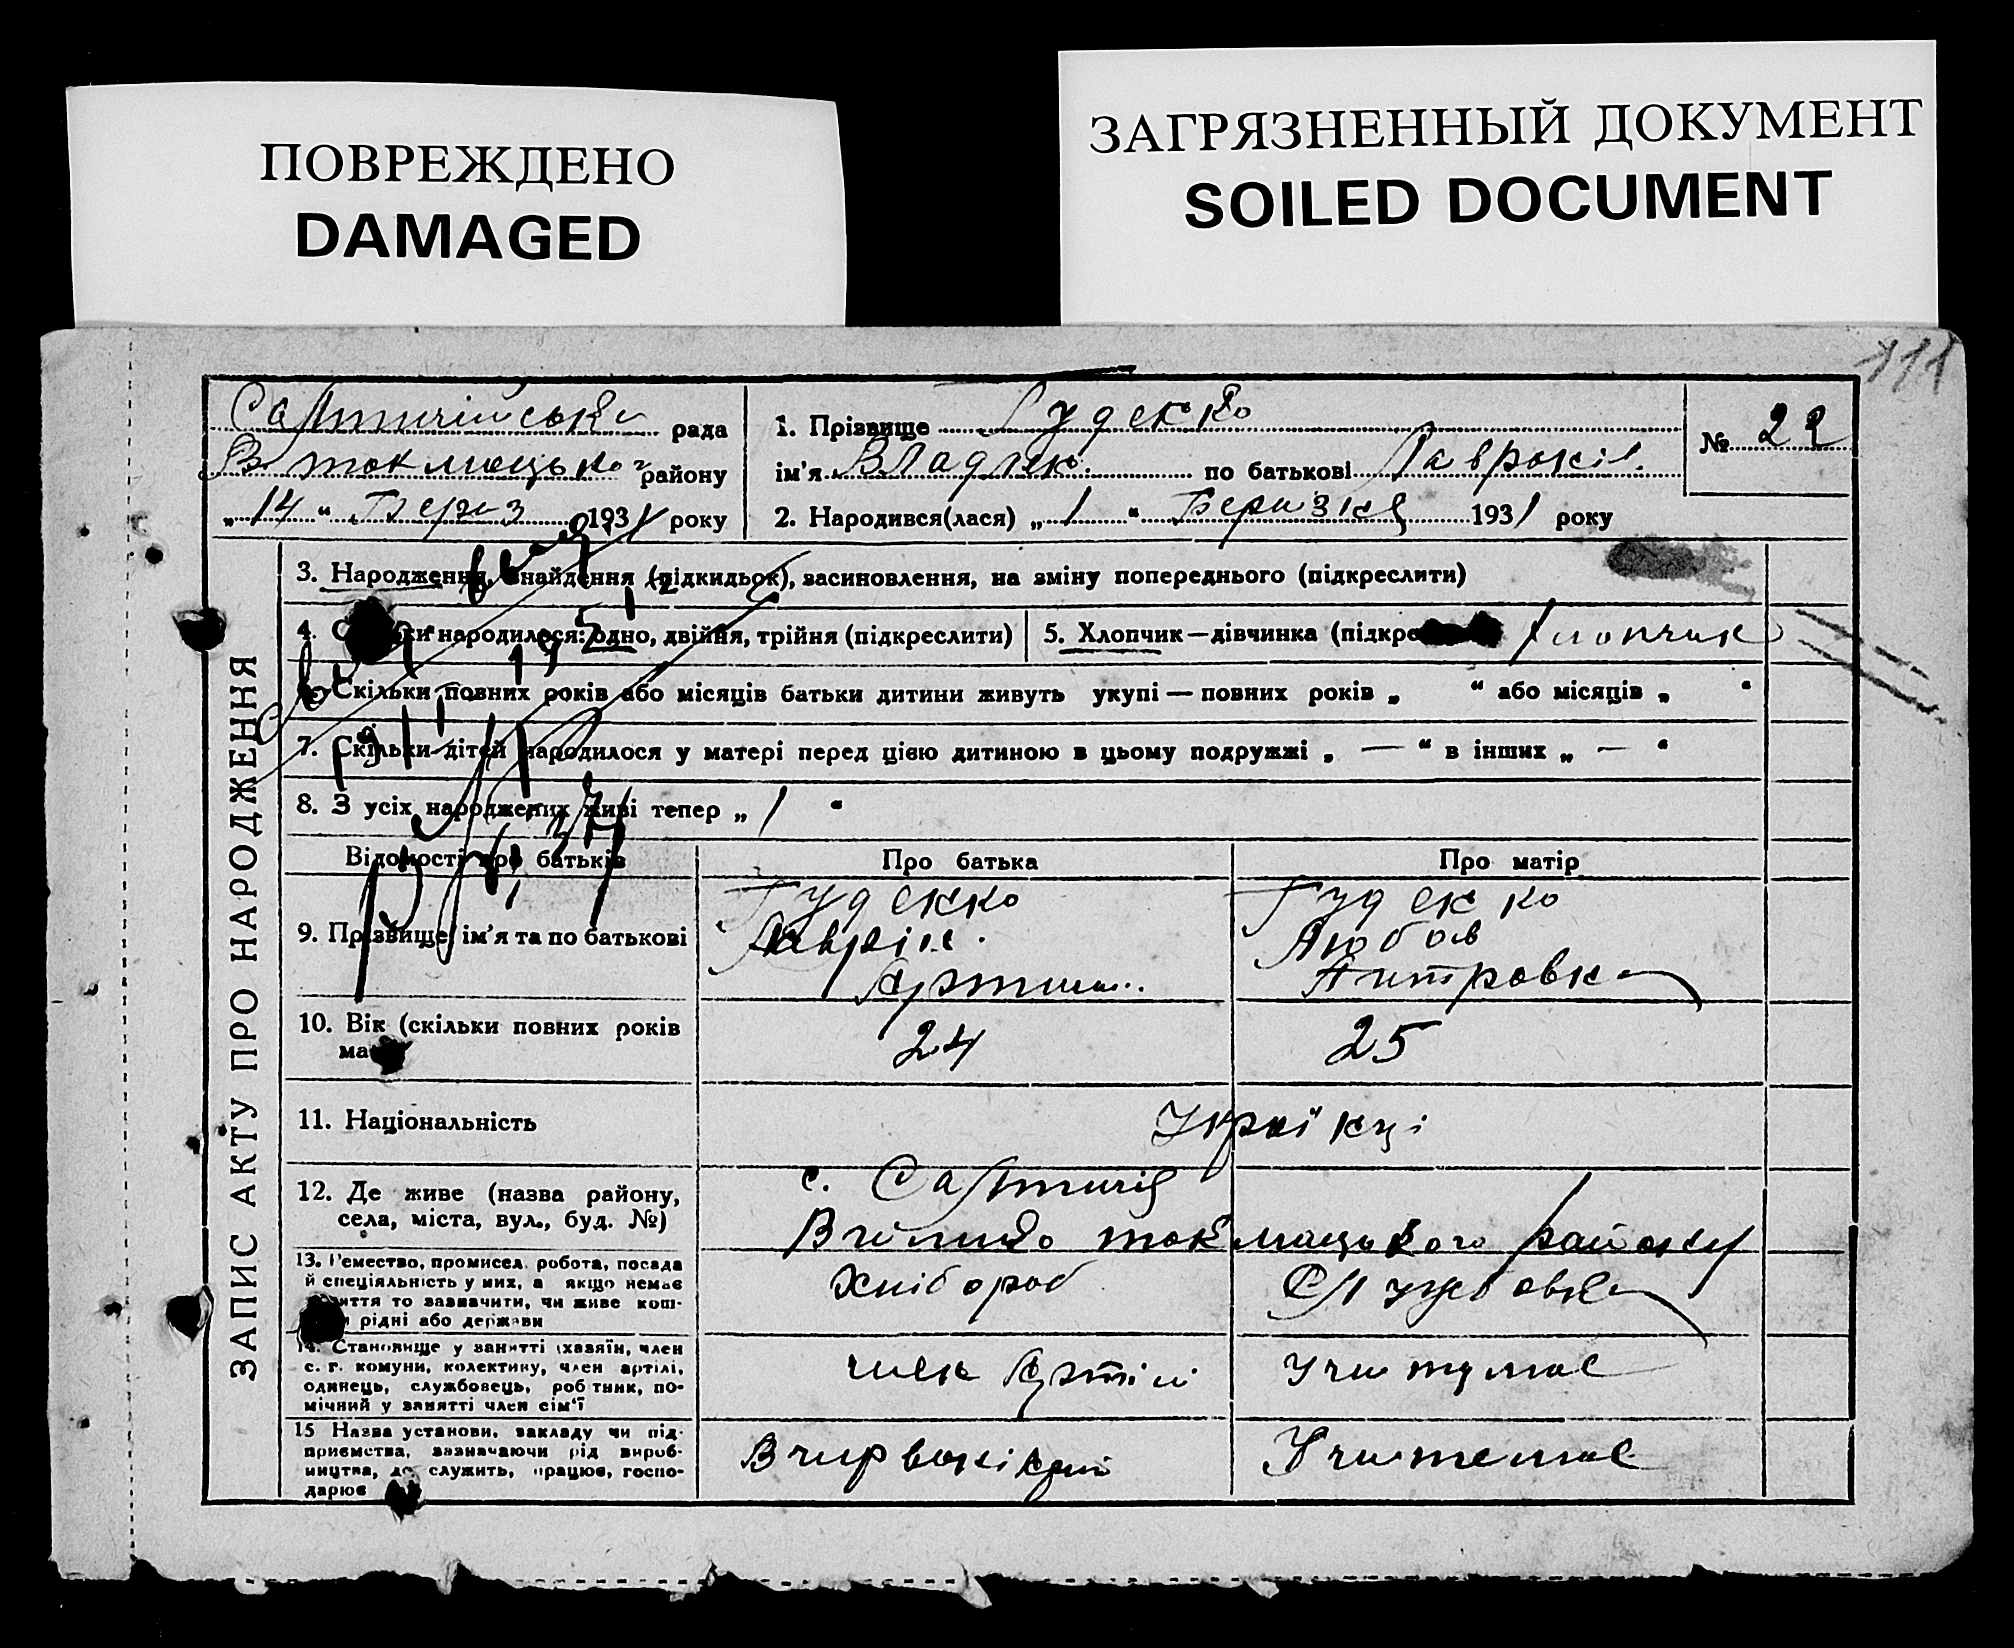 ПОВРЕЖДЕНО
DAMAGED
ЗАГРЯЗНЕННЫЙ ДОКУМЕНТ
SOILED DOCUMENT
111
рада
району
„14“ Берез 1931 року
1. Прізвище Гуденко
ім'я Владлен по батькові
2. Народився(лася) „1“ Березня 1931 року
№ 22
ЗАПИС АКТУ ПРО НАРОДЖЕННЯ
3. Народження, знайдення (підкидьок), засиновлення, на зміну попереднього (підкреслити)
4. народилося: одно, двійня, трійня (підкреслити)
5. Хлопчик — дівчинка Хлопчик
6. Скільки повних років або місяців батьки дитини живуть укупі — повних років „ “ або місяців „ “
7. Скільки дітей народилося у матері перед цією дитиною в цьому подружжі „ — “ в інших „ — “
8. З усіх народжених живі тепер „ 1 “
Відомості про батьків
Про батька
Про матір
9. Прізвище, ім'я та по батькові
Гуденко
Гуденко
Любов
10. Вік (скільки повних років
24
25
11. Національність
12. Де живе (назва району,
села, міста, вул., буд. №)
с. Салтичія
токмацького району
13. Ремество, промисел, робота, посада
й спеціяльність у них, а якщо немає
то зазначити, чи живе кош-
рідні або держави
Хлібороб
Службовка
14. Становище у занятті (хазяїн, член
с. г. комуни, колективу, член артілі,
одинець, службовець, робітник, по-
мічний у занятті член сім'ї
член Артілі
15 Назва установи, закладу чи під-
приємства, зазначаючи рід вироб-
ництва, де служить, працює, госпо-
дарює